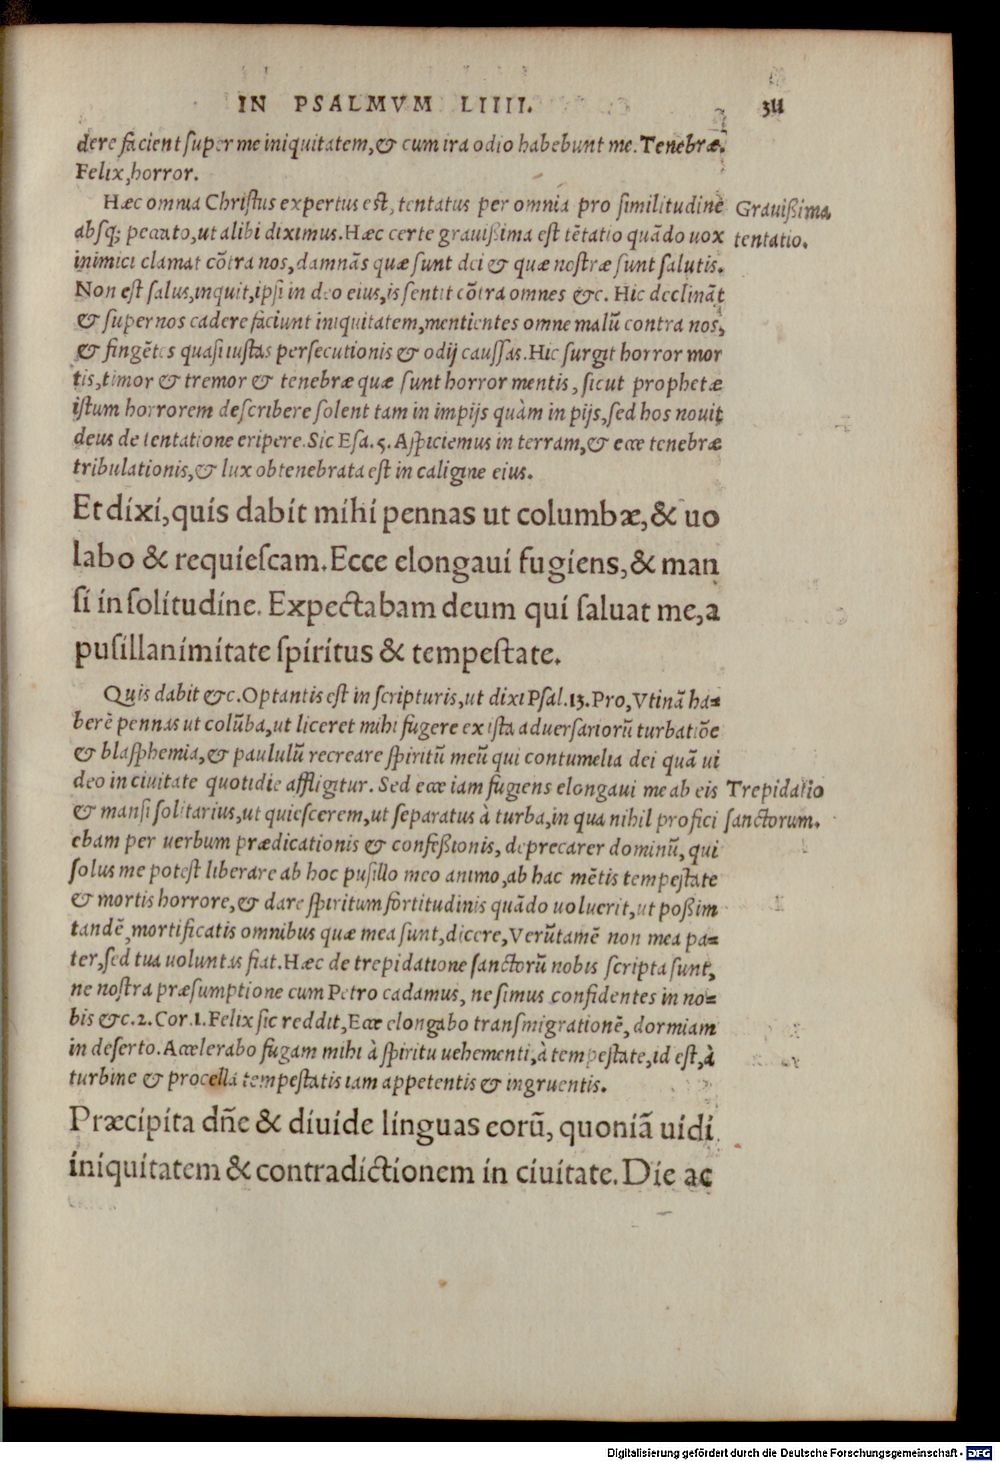 IN PSALMVM LIIII. 311
dere facient super me iniquitatem, & cum ira odio habebunt me. Tenebræ.
Felix, horror.
Hæc omnia Christus expertus est, tentatus per omnia pro similitudinē
absq; peccato, ut alibi diximus. Hæc certe grauißima est tētatio quādo uox
inimici clamat cōtra nos, damnās quæ sunt dei & quæ nostræ sunt salutis.
Non est salus, inquit, ipsi in deo eius, is sentit cōtra omnes &c. Hic declināt
& super nos cadere faciunt iniquitatem, mentientes omne malū contra nos,
& fingētes quasi iustas persecutionis & odij caussas. Hic surgit horror mor
tis, timor & tremor & tenebræ quæ sunt horror mentis, sicut prophetæ
istum horrorem describere solent tam in impijs quàm in pijs, sed hos nouit
deus de tentatione eripere. Sic Esa. 5. Aspiciemus in terram, & ecce tenebræ
tribulationis, & lux obtenebrata est in caligine eius.
Grauißima
tentatio.
Et dixi, quis dabit mihi pennas ut columbæ, & uo
labo & requiescam. Ecce elongaui fugiens, & man
si in solitudine. Expectabam deum qui saluat me, a
pusillanimitate spiritus & tempestate.
Quis dabit &c. Optantis est in scripturis, ut dixi Psal. 13. Pro, Vtinā ha=
berē pennas ut colūba, ut liceret mihi fugere ex ista aduersariorū turbatiōe
& blasphemia, & paululū recreare spiritū meū qui contumelia dei quā ui
deo in ciuitate quotidie affligitur. Sed ecce iam fugiens elongaui me ab eis
& mansi solitarius, ut quiescerem, ut separatus à turba, in qua nihil profici
ebam per uerbum prædicationis & confeßionis, deprecarer dominū, qui
solus me potest liberare ab hoc pusillo meo animo, ab hac mētis tempestate
& mortis horrore, & dare spiritum fortitudinis quādo uoluerit, ut poßim
tandē, mortificatis omnibus quæ mea sunt, dicere, Verūtamē non mea pa=
ter, sed tua uoluntas fiat. Hæc de trepidatione sanctorū nobis scripta sunt,
ne nostra præsumptione cum Petro cadamus, ne simus confidentes in no=
bis &c. 2. Cor. 1. Felix sic reddit, Ecce elongabo transmigrationē, dormiam
in deserto. Accelerabo fugam mihi à spiritu uehementi, à tempestate, id est, à
turbine & procella tempestatis iam appetentis & ingruentis.
Trepidatio
sanctorum.
Præcipita dn̄e & diuide linguas eorū, quoniā uidi
iniquitatem & contradictionem in ciuitate. Die ac
Digitalisierung gefördert durch die Deutsche Forschungsgemeinschaft - DFG